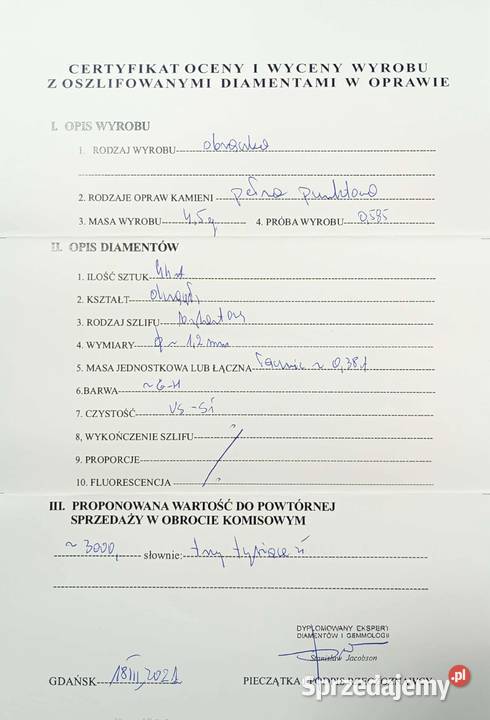 CERTYFIKAT OCENY I WYCENY WYROBU
Z OSZLIFOWANYMI DIAMENTAMI W OPRAWIE
I. OPIS WYROBU
1. RODZAJ WYROBU obrączka
2. RODZAJE OPRAW KAMIENI pełna punktowa
3. MASA WYROBU 4,5g 4. PRÓBA WYROBU 0,585
II. OPIS DIAMENTÓW
1. ILOŚĆ SZTUK
2. KSZTAŁT okrągły
3. RODZAJ SZLIFU
4. WYMIARY ϕ ~ 1,2 mm
5. MASA JEDNOSTKOWA LUB ŁĄCZNA łącznie ~ 0,38
6.BARWA ~ G-H
7. CZYSTOŚĆ VS-Si
8, WYKOŃCZENIE SZLIFU
9. PROPORCJE
10. FLUORESCENCJA
III. PROPONOWANA WARTOŚĆ DO POWTÓRNEJ
SPRZEDAŻY W OBROCIE KOMISOWYM
~ 3000,- słownie: trzy tysiące zł
DYPLOMOWANY EKSPERT
DIAMENTÓW I GEMMOLOGII
Stanisław Jacobson
GDAŃSK 18III,2021 PIECZĄTKA I PODPIS RZECZOZNAWCY
Sprzedajemy.pl